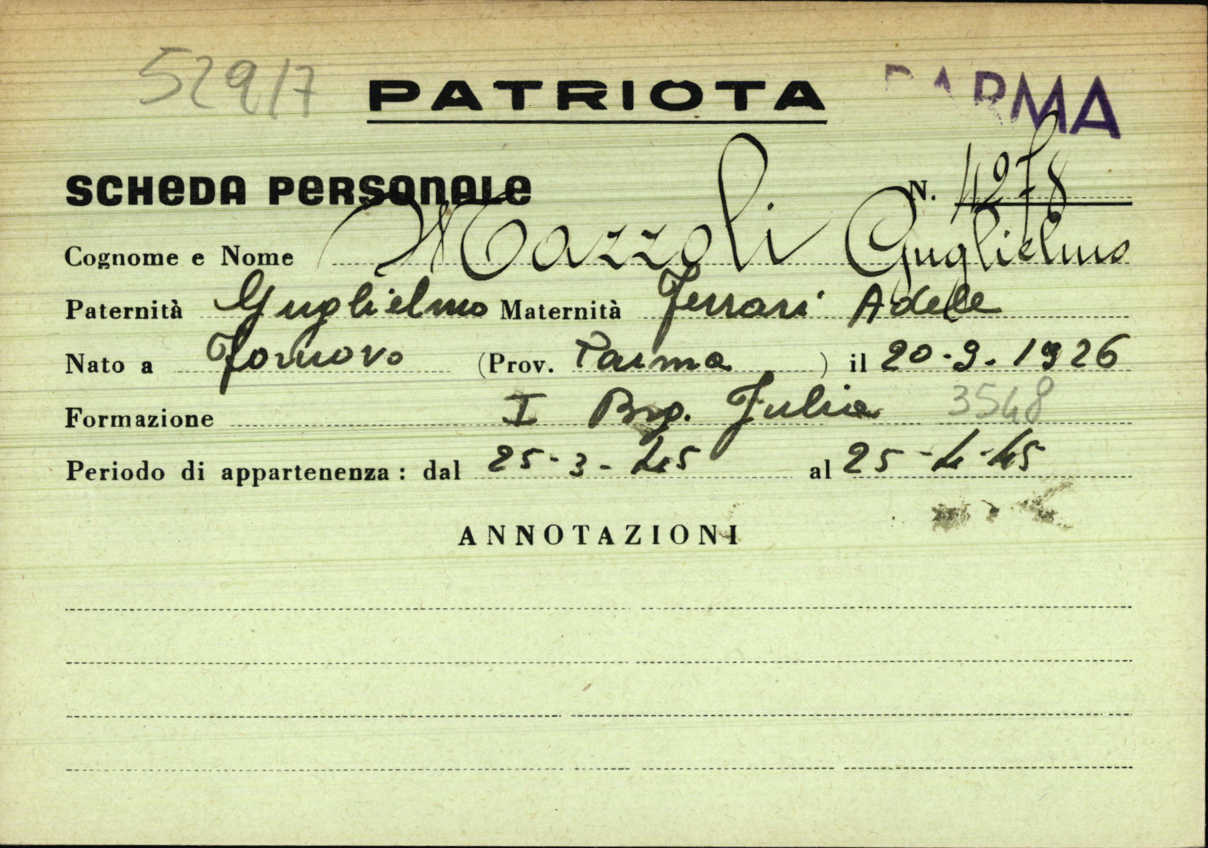 529/7 PATRIOTA PARMA
SCHEDA PERSONALE N. 4278
Cognome e Nome Mazzoli Guglielmo
Paternità Guglielmo Maternità Ferrari Adele
Nato a Fornovo (Prov. Parma) il 20-9-1926
Formazione I Brg. Julia 3548
Periodo di appartenenza: dal 25-3-45 al 25-4-45
ANNOTAZIONI